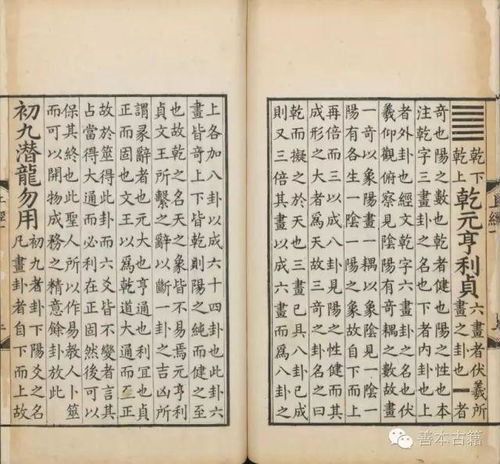 ䷀
乾下
乾上
乾元亨利貞
六畫者伏羲所
畫之卦也一者
奇也陽之數也乾者健也陽之性也本
注乾字三畫卦之名也下者內卦也上
者外卦也經文乾字六畫卦之名也伏
羲仰觀俯察見陰陽有奇耦之數故畫
一奇以象陽畫一耦以象陰見一陰一
陽有各生一陰一陽之象故自下而上
再倍而三以成八卦見陽之性健而其
成形之大者爲天故三奇之卦名之曰
乾而擬之於天也三畫已具八卦已成
則又三倍其畫以成六畫而於八卦之
上各加八卦以成六十四卦也此卦六
畫皆奇上下皆乾則陽之純而健之至
也故乾之名天之象皆不易焉元亨利
貞文王所繫之辭以斷一卦之吉凶所
謂彖辭者也元大也亨通也利宜也貞
正而固也文王以爲乾道大通而至正
故於筮得此卦而六爻皆不變者言其
占當得大通而必利在正固然後可以
保其終也此聖人所以作易教人卜筮
而可以開物成務之精意餘卦放此
初九潛龍勿用
初九者卦下陽爻之名
凡畫卦者自下而上故
善本古籍